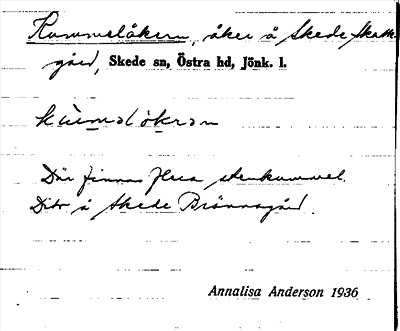 Kummelåkern, åker å Skede Skatte-
gård, Skede sn, Östra hd, Jönk. l.
kùmǝlókrǝn
Där finnas flera stenkummel.
Dito å Skede Brännsgård.
Annalisa Anderson 1936